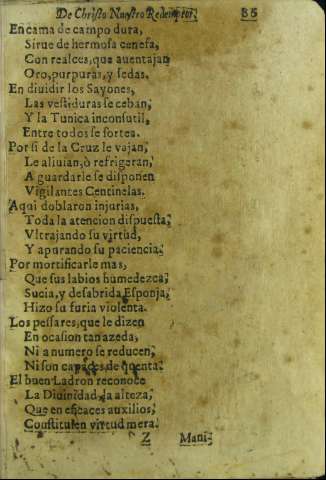 De Christo Nuestro Redemptor. 86
En cama de campo dura,
Sirue de hermosa cenefa,
Con realces, que auentajan
Oro, purpuras, y sedas.
En diuidir los Sayones,
Las vestiduras se ceban,
Y la Tunica inconsutil,
Entre todos se sortea.
Por si de la Cruz le vajan,
Le aliuian, ò refrigeran,
A guardarle se disponen
Vigilantes Centinelas.
Aqui doblaron injurias,
Toda la atencion dispuesta,
Vltrajando su virtud,
Y apurando su paciencia.
Por mortificarle mas,
Que sus labios humedezca,
Sucia, y desabrida Esponja,
Hizo su furia violenta.
Los pessares, que le dizen
En ocasion tan azeda,
Ni a numero se reducen,
Ni son capaces de quenta.
El buen Ladron reconoce
La Diuinidad, la alteza,
Que en eficaces auxilios,
Constituien virtud mera.
Z Mani-